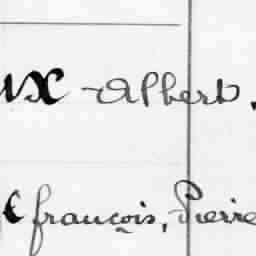 ux Albert.
e françois, Pierre